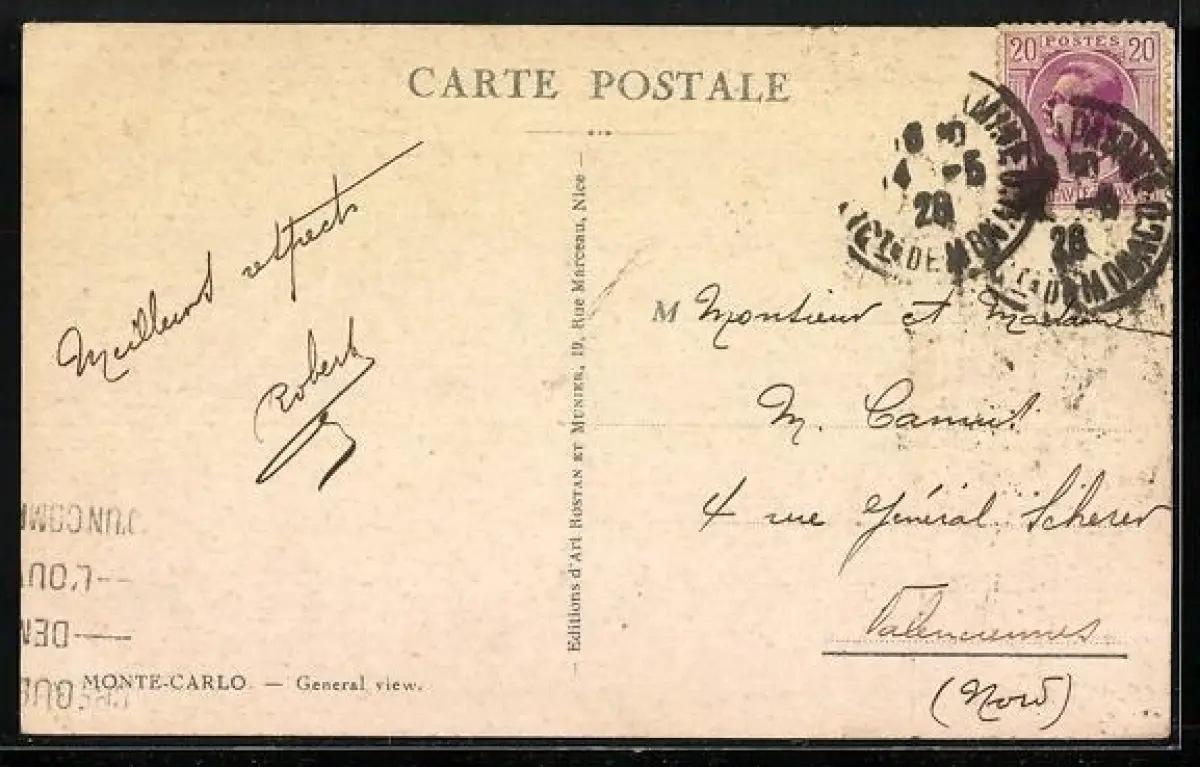 CARTE POSTALE
20 POSTES 20
28
DE MONACO
28
MONACO
Meilleurs respects
Robert
Editions d'Art ROSTAN ET MUNIER, 19, Rue Marceau, Nice
M Monsieur et Madame
M.
4 rue Général Scherer
Valenciennes
(Nord)
MONTE-CARLO — General view.